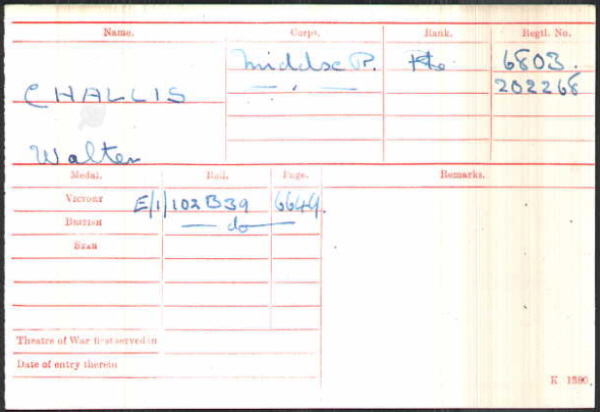 Name. Corps. Rank. Regtl. No.
Middx R. Pte 6803.
CHALLIS — " — 202268
Walter
Medal. Roll. Page. Remarks.
VICTORY E/1/102B39 6649.
BRITISH — do —
STAR
Theatre of War first served in
Date of entry therein
K 1380.